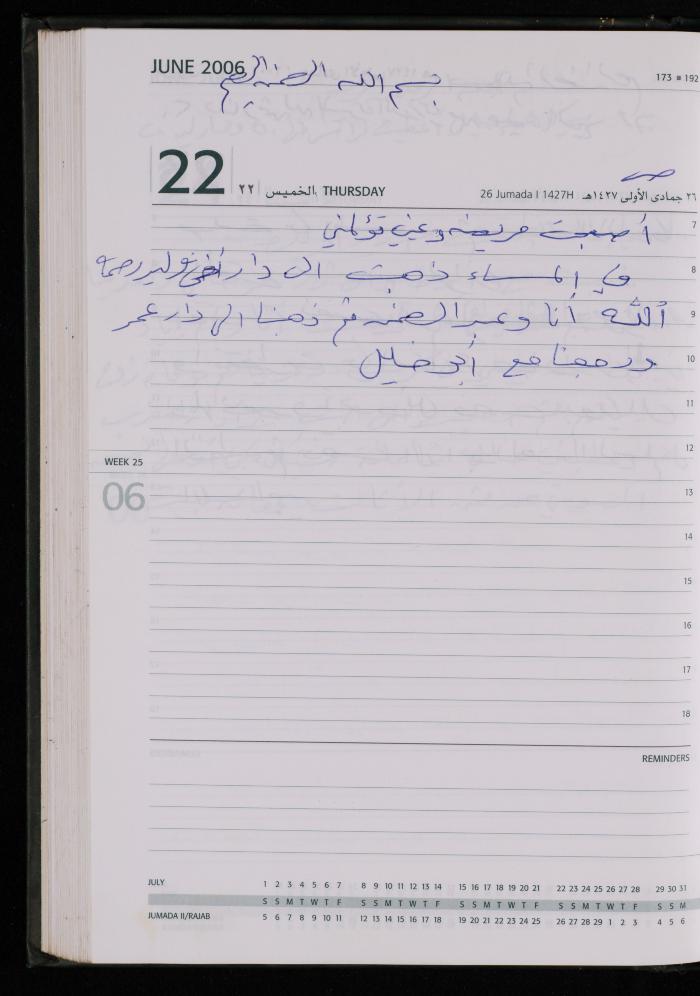 JUNE 2006
بسم الله الرحمن الرحيم
173 ■ 192
22 ٢٢ الخميس THURSDAY
26 Jumada I 1427H ٢٦ جمادى الأولى ١٤٢٧هـ
7
أصبحت مريضه وعيني تؤلمني
8
وفي المساء ذهبت الى دار أخي وليد رحمة
9
الله أنا وعبد الرحمن ثم ذهبنا الى دار عمر
10
ورجعنا مع أبو خليل
11
12
WEEK 25
06
13
14
15
16
17
18
REMINDERS
JULY 1 2 3 4 5 6 7 8 9 10 11 12 13 14 15 16 17 18 19 20 21 22 23 24 25 26 27 28 29 30 31
S S M T W T F S S M T W T F S S M T W T F S S M T W T F S S M
JUMADA II/RAJAB 5 6 7 8 9 10 11 12 13 14 15 16 17 18 19 20 21 22 23 24 25 26 27 28 29 1 2 3 4 5 6